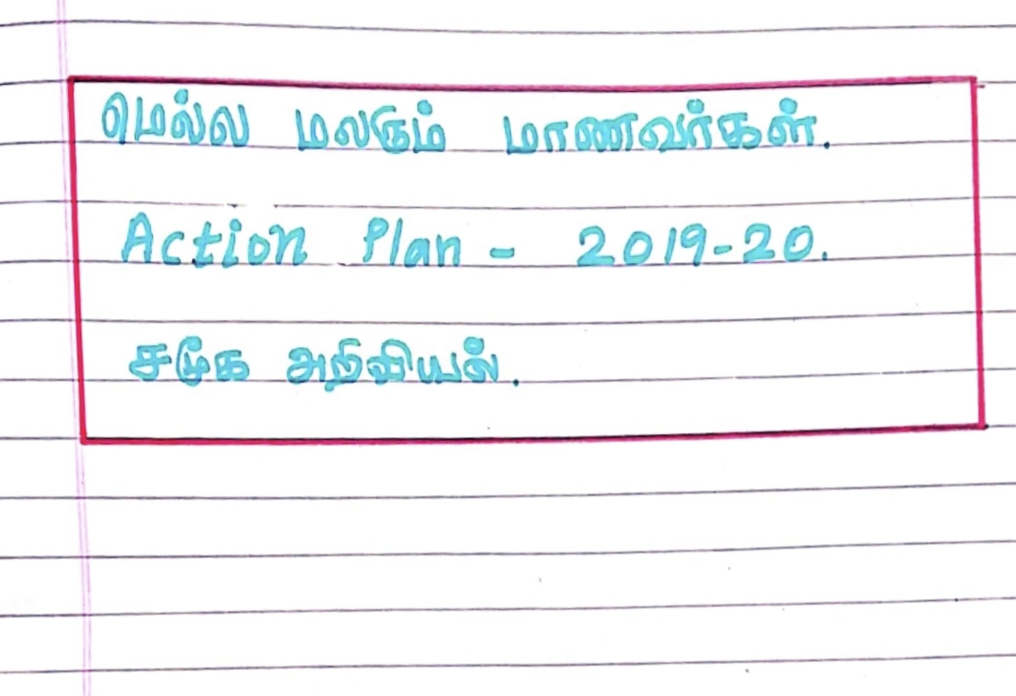 மெல்ல மலரும் மாணவர்கள்.
Action Plan - 2019-20.
சமூக அறிவியல்.